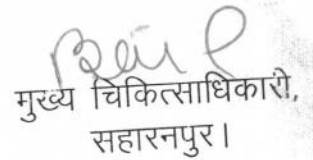 मुख्य चिकित्साधिकारी,
सहारनपुर।